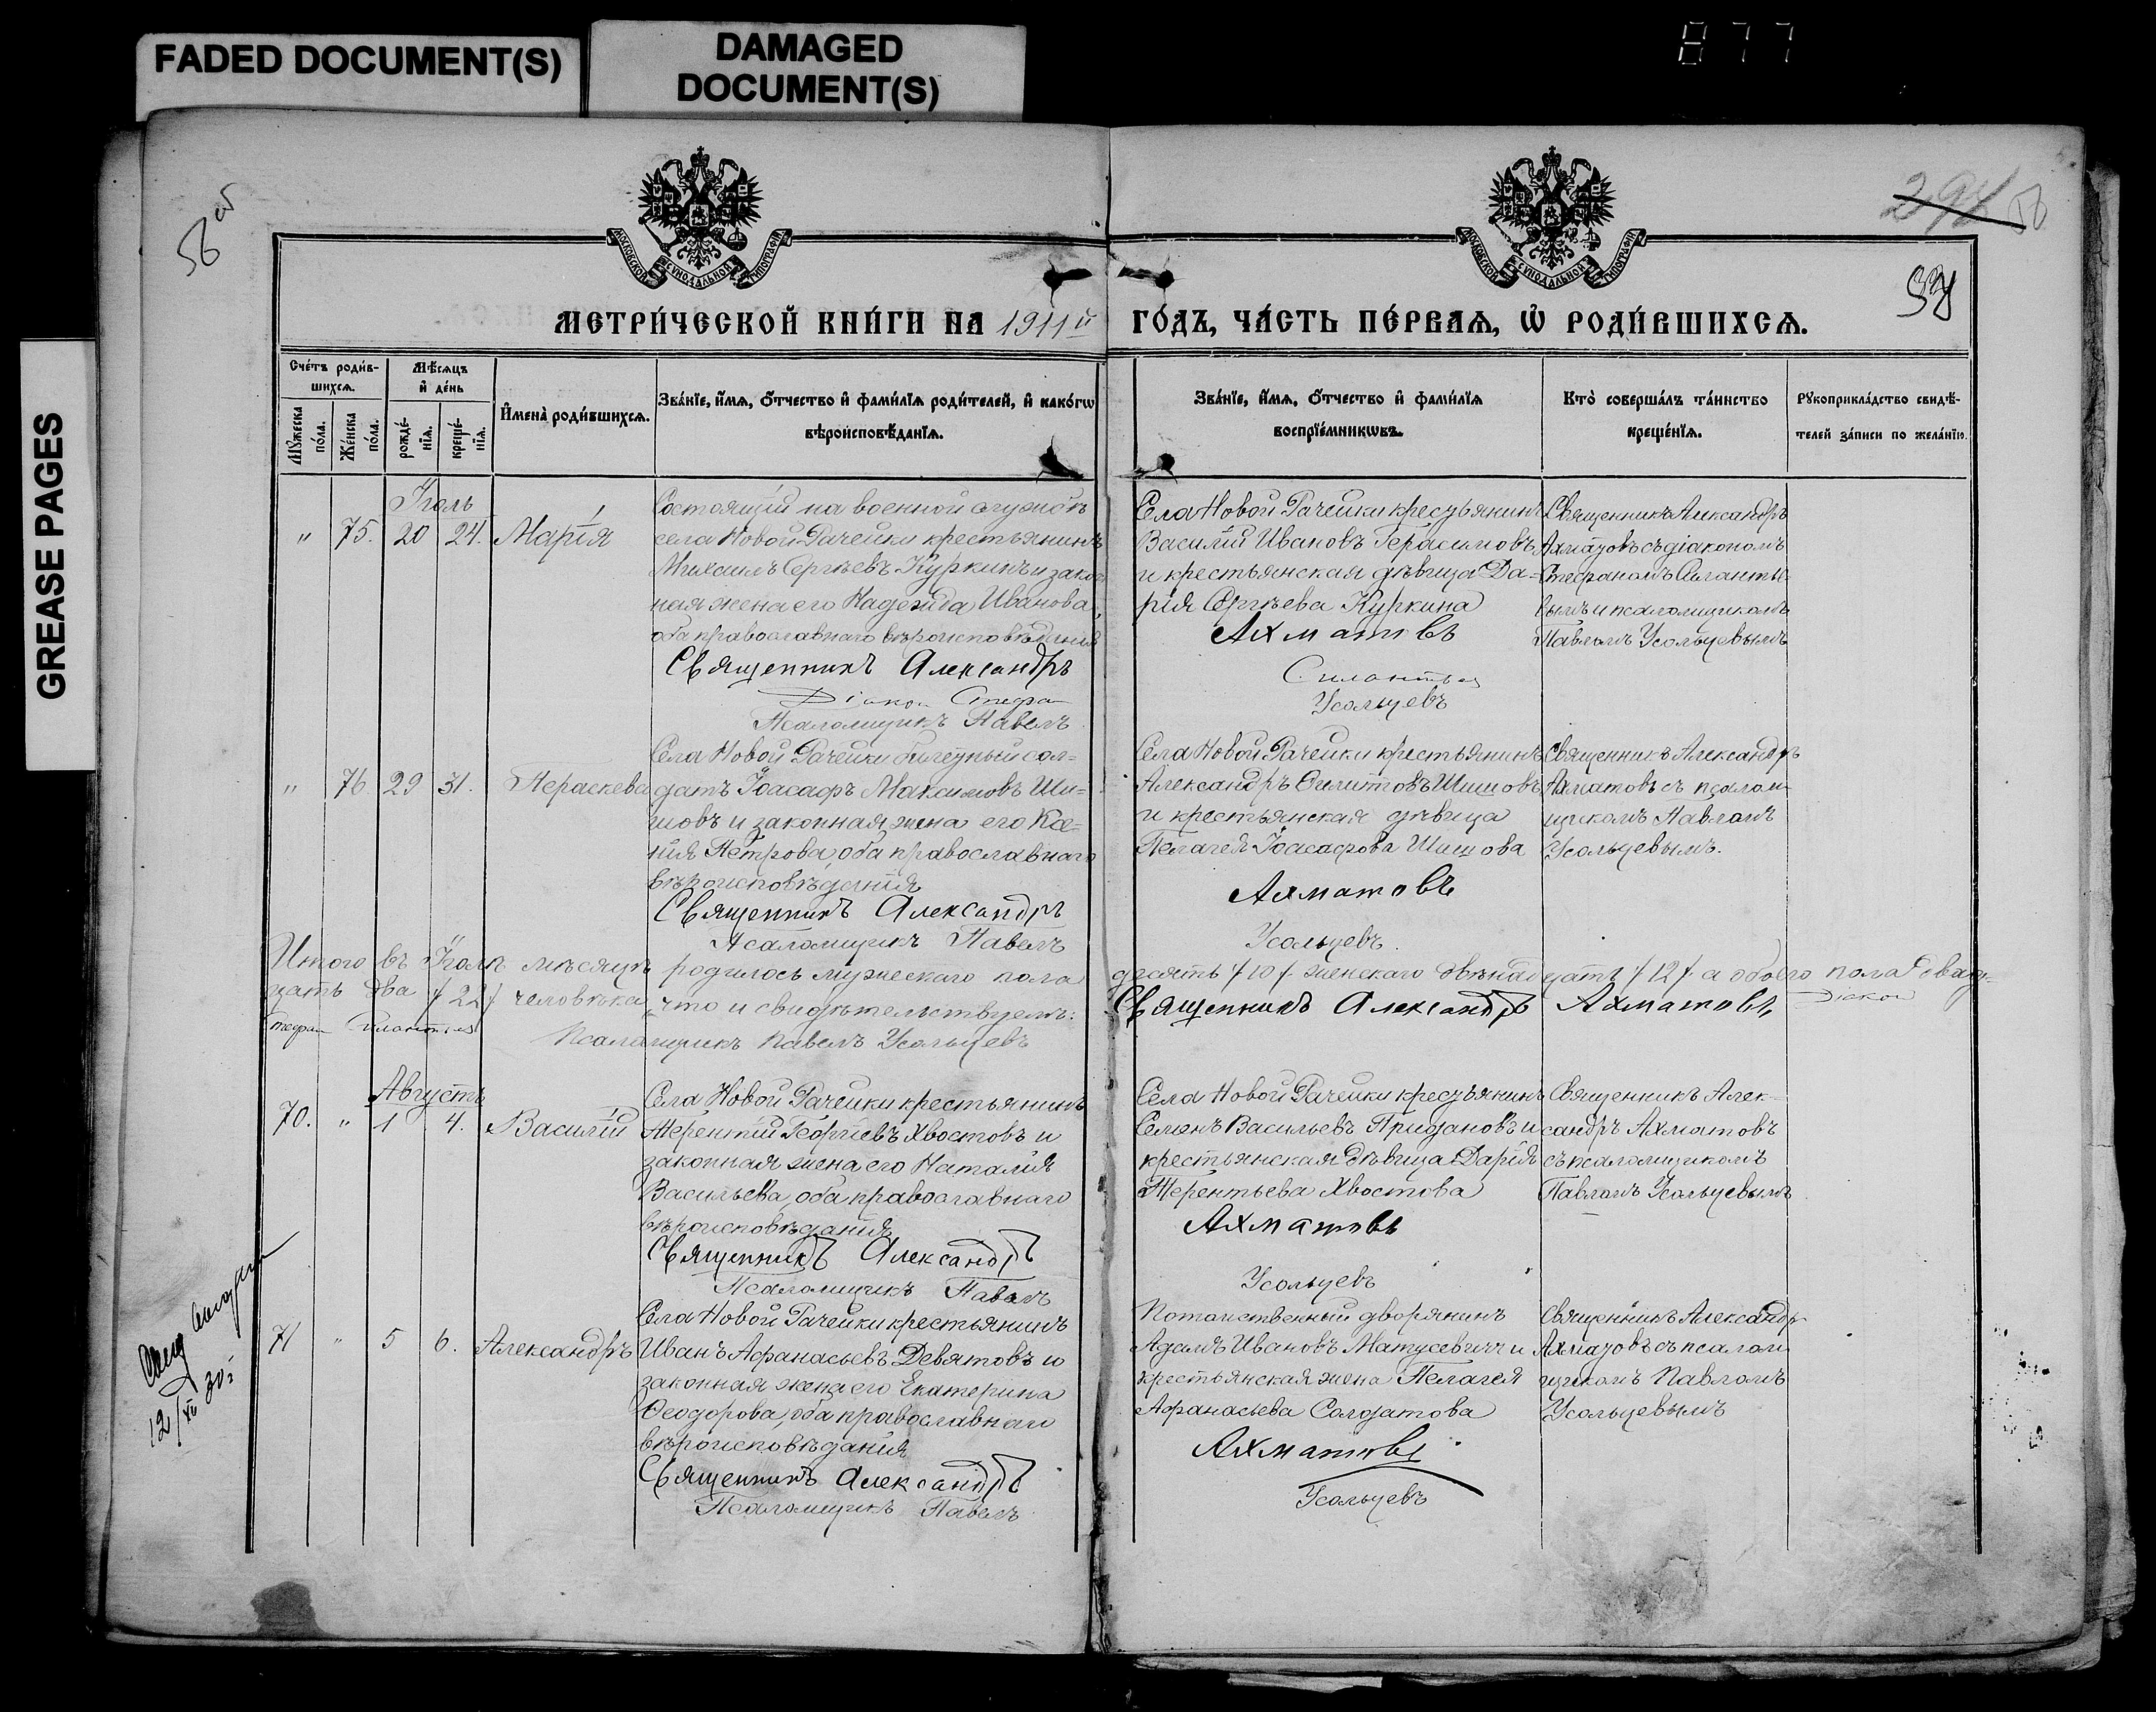 FADED DOCUMENT(S)
DAMAGED
DOCUMENT(S)
877
GREASE PAGES
56 об
294
58
МОСКОВСКОЙ СѴНОДАЛЬНОЙ ТИПОГРАФІИ
МОСКОВСКОЙ СѴНОДАЛЬНОЙ ТИПОГРАФІИ
МЕТРИ́ЧЕСКОЙ КНИ́ГИ НА 1911й
ГО́ДЪ, ЧА́СТЬ ПЕ́РВАѦ, Ѡ҆ РОДИ́ВШИХСѦ.
Сче́тъ роди́в-
шихсѧ.
Мꙋ́жеска по́ла.
Же́нска по́ла.
Мѣ́сѧцъ
и҆ де́нь
рожде́нїѧ.
креще́нїѧ.
И҆мена̀ роди́вшихсѧ.
Зва́нїе, и҆́мѧ, ѻ҆́тчество и҆ фами́лїѧ роди́телей, и҆ како́гѡ
вѣроисповѣ́данїѧ.
Зва́нїе, и҆́мѧ, ѻ҆́тчество и҆ фами́лїѧ
воспрїе́мникѡвъ.
Кто̀ соверша́лъ та́инство
креще́нїѧ.
Рꙋкоприкла́дство свидѣ́-
телей за́писи по жела́нїю.
Іюль
" 75. 20 24. Марія
Состоящій на военной службѣ
села Новой Рачейки крестьянинъ
Михаилъ Сергѣевъ Куркинъ и закон
ная жена его Надежда Иванова,
оба православнаго вѣроисповѣданія
Священникъ Александръ
Діакон Стефан
Псаломщикъ Павелъ
Села Новой Рачейки крестьянинъ
Василій Ивановъ Герасимовъ
и крестьянская дѣвица Да-
рія Сергѣева Куркина
Ахматовъ
Силантьев
Усольцевъ
Священникъ Александръ
Ахматовъ съ діакономъ
Стефаномъ Силантье
вымъ и псаломщикомъ
Павломъ Усольцевымъ
" 76. 29 31. Параскева
Села Новой Рачейки билетный сол-
датъ Іоасафъ Максимовъ Ши-
шовъ и законная жена его Ксе-
нія Петрова, оба православнаго
вѣроисповѣданія
Священникъ Александръ
Псаломщикъ Павелъ
Села Новой Рачейки крестьянинъ
Александръ Филитовъ Шишовъ
и крестьянская дѣвица
Пелагея Іоасафова Шишова
Ахматовъ
Усольцевъ.
Священникъ Александръ
Ахматовъ съ псалом-
щикомъ Павломъ
Усольцевымъ.
Итого въ Іюлѣ мѣсяцѣ родилось мужескаго пола десять /10/ женскаго двѣнадцать /12/ а обоего пола двад-
цать два /22/ человѣка, что и свидѣтельствуемъ: Священникъ Александръ Ахматовъ, Діакон
Стефан Силантьев Псаломщикъ Павелъ Усольцевъ
Августъ
70. " 1 4. Василій
Села Новой Рачейки крестьянинъ
Терентій Георгіевъ Хвостовъ и
законная жена его Наталія
Васильева, оба православнаго
вѣроисповѣданія
Священникъ Александръ
Псаломщикъ Павелъ
Села Новой Рачейки крестьянинъ
Семенъ Васильевъ Придановъ и
крестьянская дѣвица Дарія
Терентьева Хвостова
Ахматовъ
Усольцевъ
Священникъ Алек-
сандръ Ахматовъ
съ псаломщикомъ
Павломъ Усольцевымъ
12/XI 30г
71 " 5 6. Александръ
Села Новой Рачейки крестьянинъ
Иванъ Афанасьевъ Девятовъ и
законная жена его Екатерина
Феодорова, оба православнаго
вѣроисповѣданія
Священникъ Александръ
Псаломщикъ Павелъ
Потомственный дворянинъ
Адамъ Ивановъ Матусевичъ и
крестьянская жена Пелагея
Афанасьева Солдатова
Ахматовъ
Усольцевъ
Священникъ Александръ
Ахматовъ съ псалом
щикомъ Павломъ
Усольцевымъ